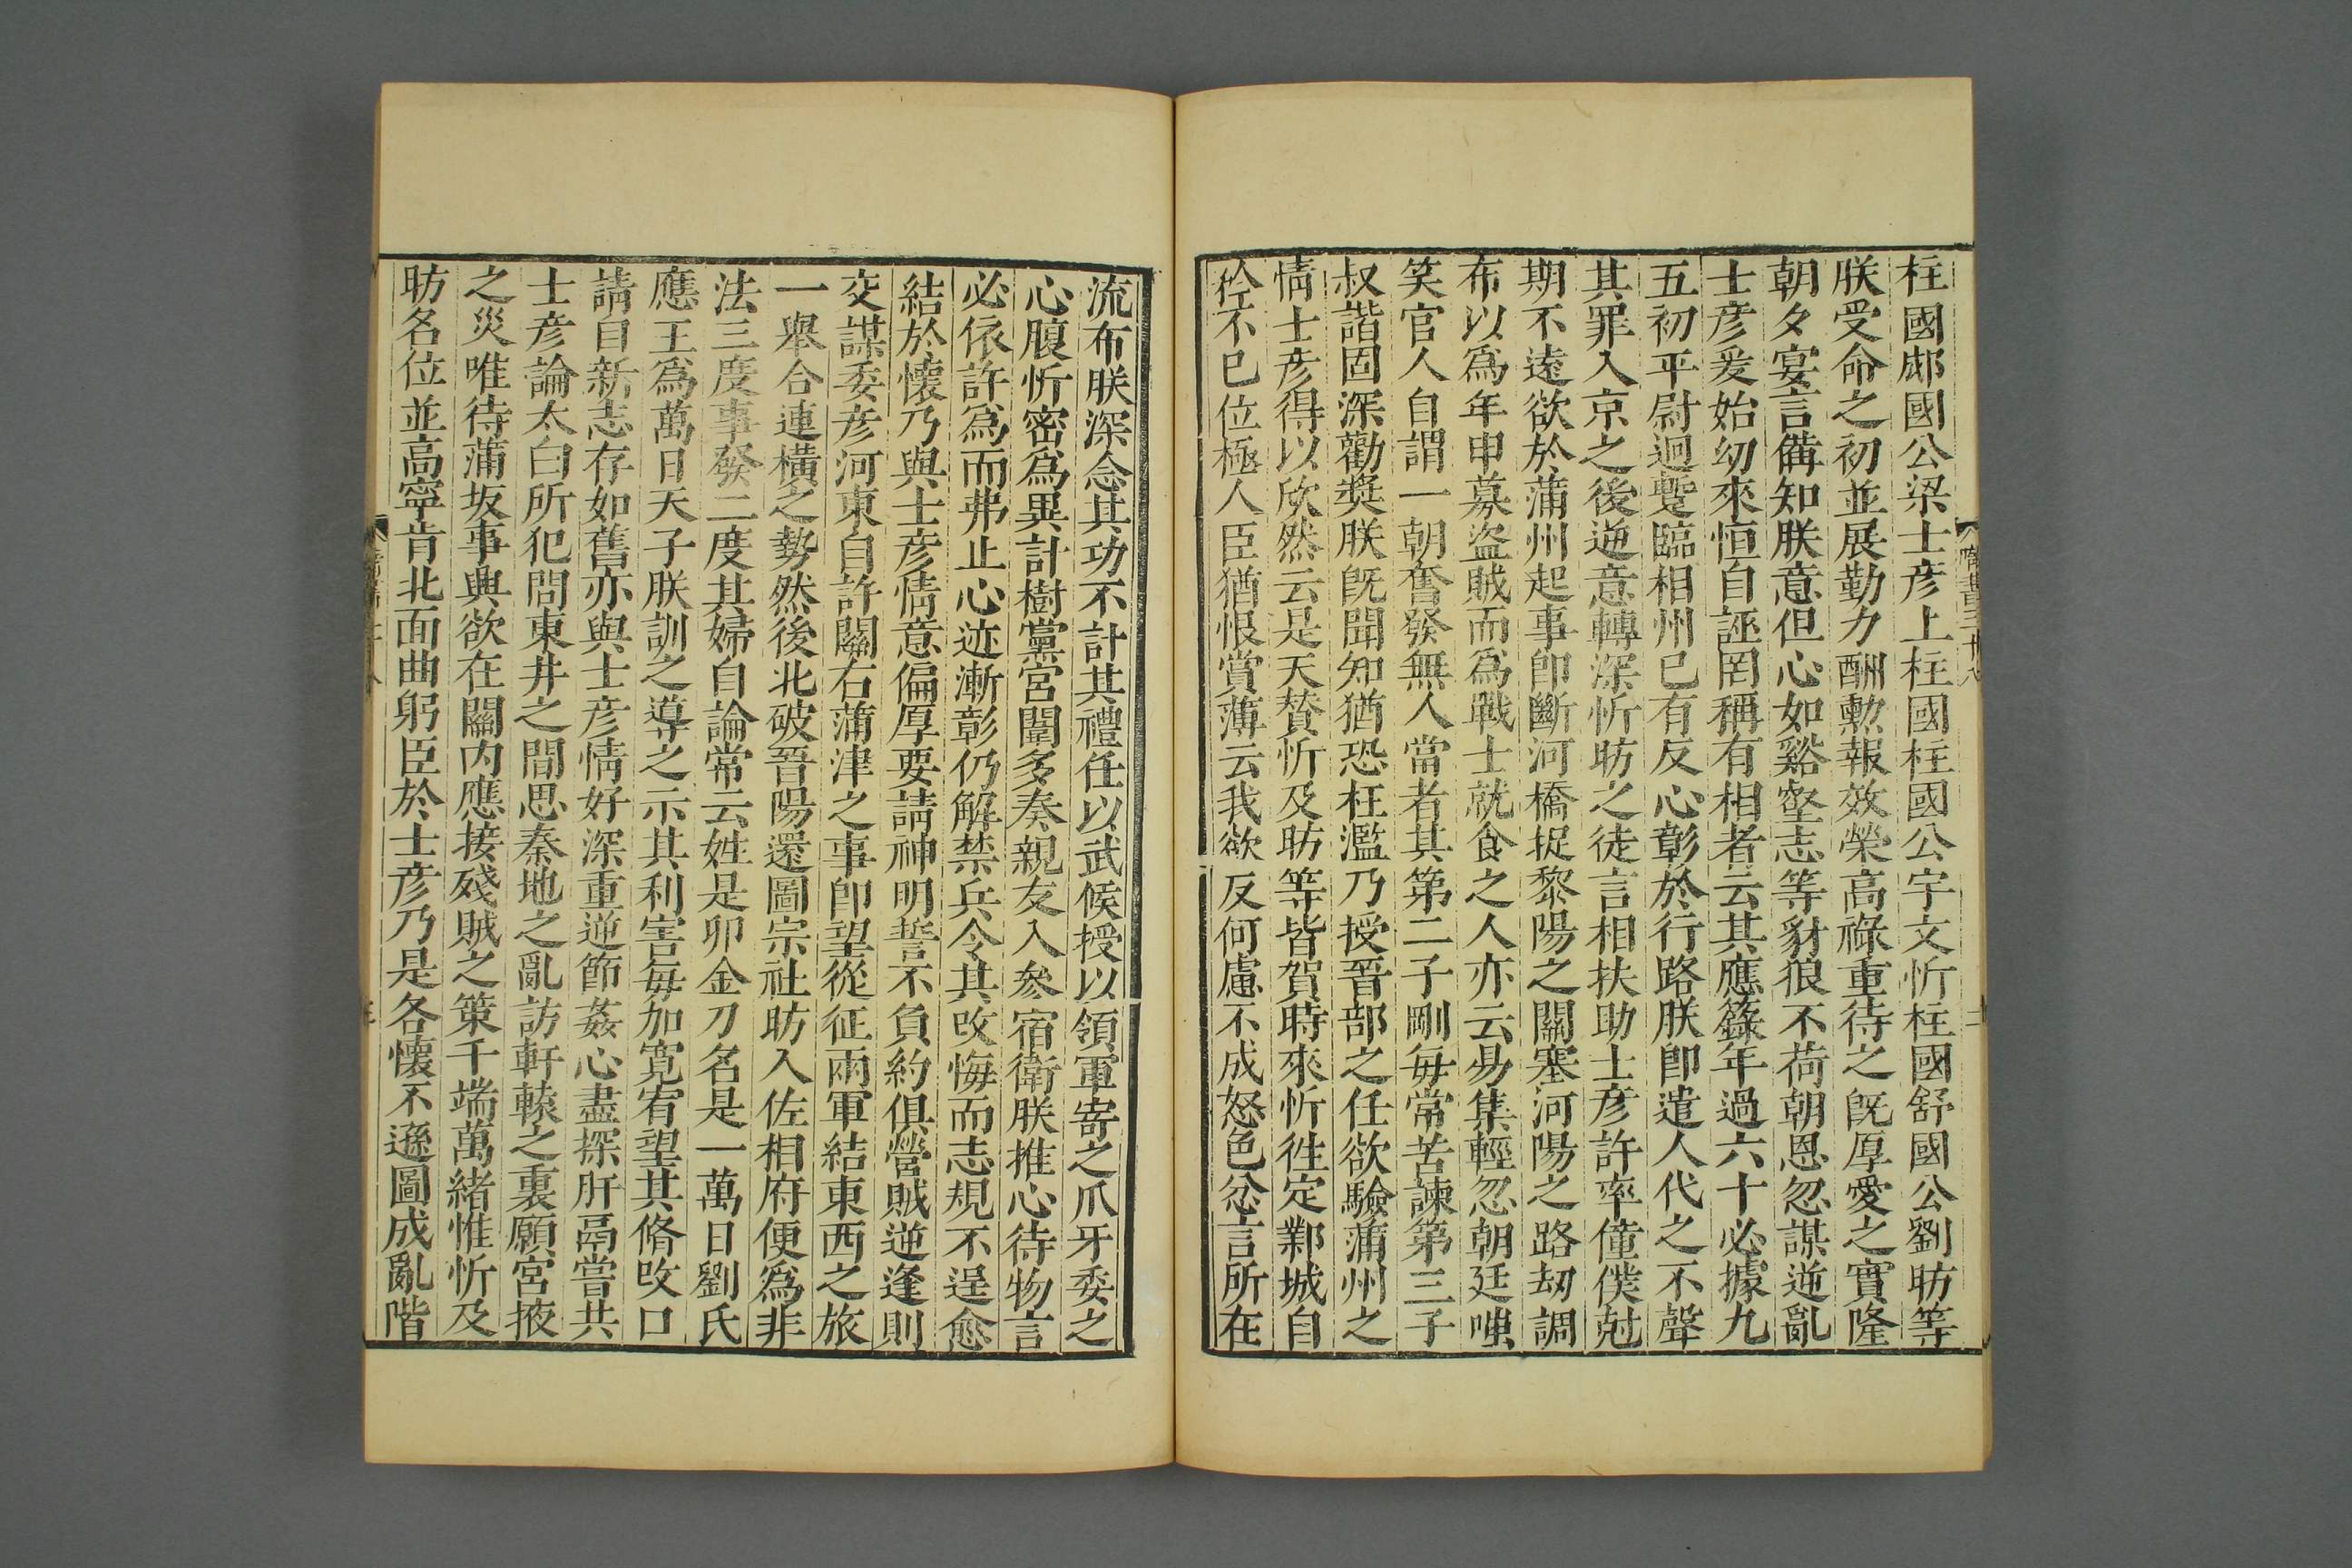 柱國郕國公梁士彦上柱國柱國公宇文忻柱國舒國公劉昉等
朕受命之初並展勤力酬勲報效榮高祿重待之旣厚愛之實隆
朝夕宴言備知朕意但心如谿壑志等豺狼不荷朝恩忽謀逆亂
士彦爰始幼來恒自誣罔稱有相者云其應籙年過六十必據九
五初平尉迥蹔臨相州已有反心彰於行路朕即遣人代之不聲
其罪入京之後逆意轉深忻昉之徒言相扶助士彦許率僮僕尅
期不遠欲於蒲州起事即斷河橋捉黎陽之關塞河陽之路刼調
布以爲年申募盜賊而爲戰士就食之人亦云易集輕忽朝廷嗤
笑官人自謂一朝奮發無人當者其第二子剛毎常苦諫第三子
叔諧固深勸奬朕旣聞知猶恐枉濫乃授晉部之任欲驗蒲州之
情士彦得以欣然云是天賛忻及昉等皆賀時來忻徃定鄴城自
矜不已位極人臣猶恨賞薄云我欲反何慮不成怒色忿言所在
流布朕深念其功不計其禮任以武候授以領軍寄之爪牙委之
心腹忻密爲異計樹黨宮闈多奏親友入參宿衛朕推心待物言
必依許爲而弗止心迹漸彰仍解禁兵令其攺悔而志規不逞愈
結於懷乃與士彦情意偏厚要請神明誓不負約俱營賊逆逢則
交謀委彦河東自許關右蒲津之事即望從征兩軍結東西之旅
一舉合連橫之勢然後北破晉陽還圖宗社昉入佐相府便爲非
法三度事發二度其婦自論常云姓是卯金刀名是一萬日劉氏
應王爲萬日天子朕訓之導之示其利害毎加寬宥望其脩攺口
請自新志存如舊亦與士彦情好深重逆節姦心盡探肝鬲嘗共
士彦論太白所犯問東井之間思秦地之亂訪軒轅之裏願宮掖
之災唯待蒲坂事興欲在關内應接殘賊之策千端萬緒惟忻及
昉名位並高寧肯北面曲躬臣於士彦乃是各懷不遜圖成亂階